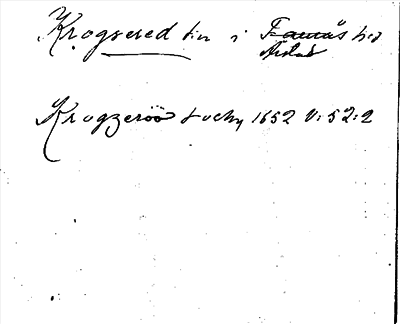 Krogsered sn i Faurås hd
Årstad
Krogzeröö Sochn 1652 V:52:2